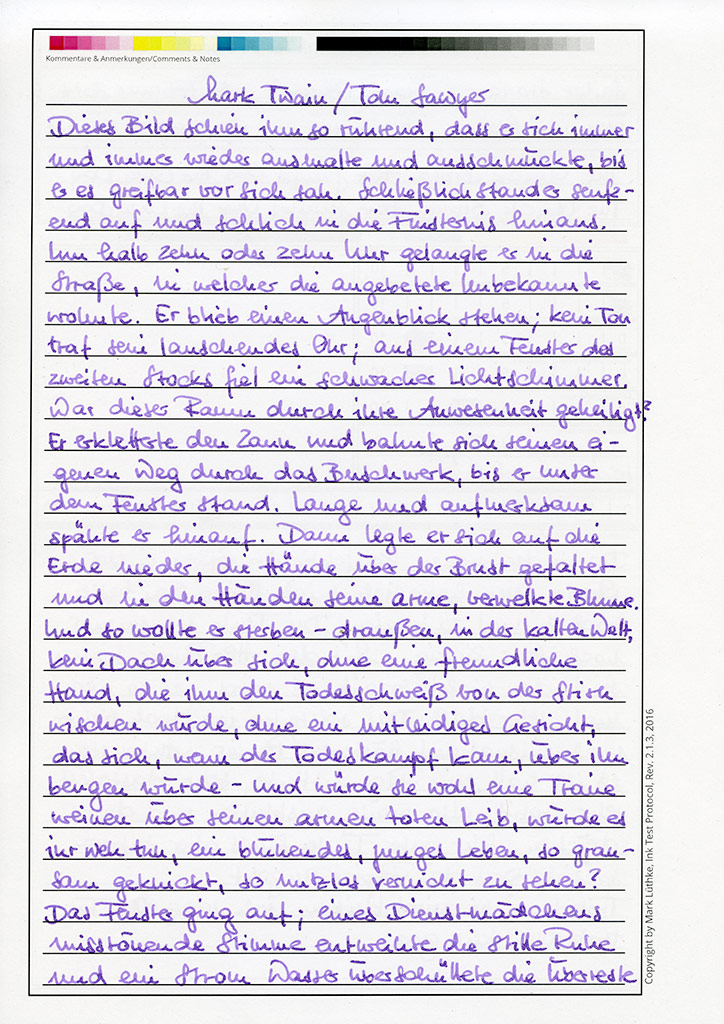 Kommentare & Anmerkungen/Comments & Notes
Mark Twain / Tom Sawyer
Dieses Bild schien ihm so rührend, dass er sich immer
und immer wieder ausmalte und ausschmückte, bis
er es greifbar vor sich sah. Schließlich stand er seufz-
end auf und schlich in die Finsternis hinaus.
Um halb zehn oder zehn Uhr gelangte er in die
Straße, in welcher die angebetete Unbekannte
wohnte. Er blieb einen Augenblick stehen; kein Ton
traf sein lauschendes Ohr; aus einem Fenster des
zweiten Stocks fiel ein schwacher Lichtschimmer.
War dieser Raum durch ihre Anwesenheit geheiligt?
Er erkletterte den Zaun und bahnte sich seinen ei-
genen Weg durch das Buschwerk, bis er unter
dem Fenster stand. Lange und aufmerksam
spähte er hinauf. Dann legte er sich auf die
Erde nieder, die Hände über der Brust gefaltet
und in den Händen seine arme, verwelkte Blume.
Und so wollte er sterben – draußen, in der kalten Welt,
kein Dach über sich, ohne eine freundliche
Hand, die ihm den Todesschweiß von der Stirn
wischen würde, ohne ein mitleidiges Gesicht,
das sich, wenn der Todeskampf kam, über ihn
beugen würde – und würde sie wohl eine Träne
weinen über seinen armen toten Leib, würde es
ihr weh tun, ein blühendes, junges Leben, so grau-
sam geknickt, so nutzlos vernicht zu sehen?
Das Fenster ging auf; eines Dienstmädchens
misstönende Stimme entweihte die stille Ruhe
und ein Strom Wasser überschüttete die Überreste
Copyright by Mark Lüthke, Ink Test Protocol, Rev. 2.1.3, 2016